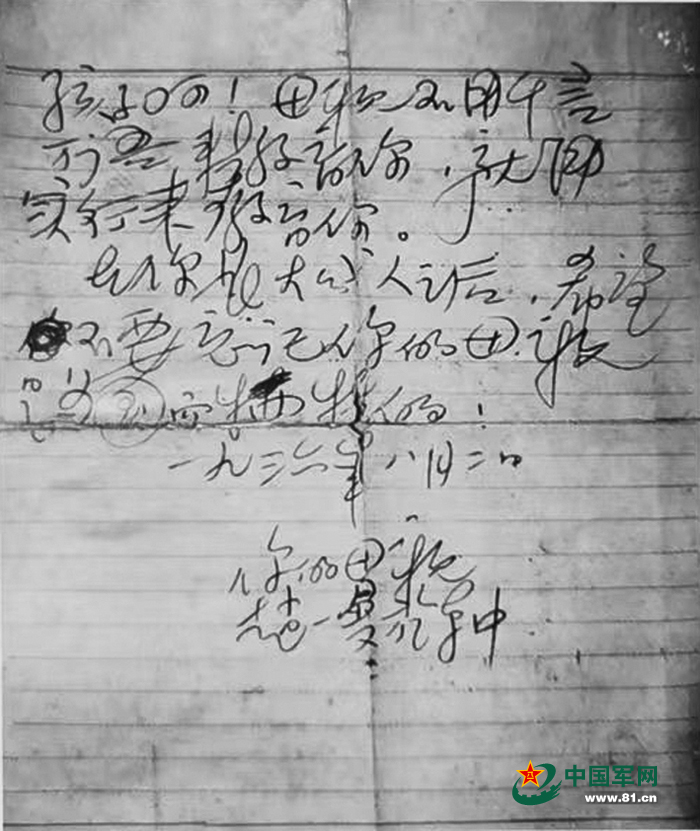 孩子呵！母親不用千言
万语来教育你，就用
实行来教育你。
在你长大成人之后，希望
不要忘记你的母親
是为国而牺牲的！
一九三六年八月二日
你的母親
赵一曼於车中
中国军网
www.81.cn